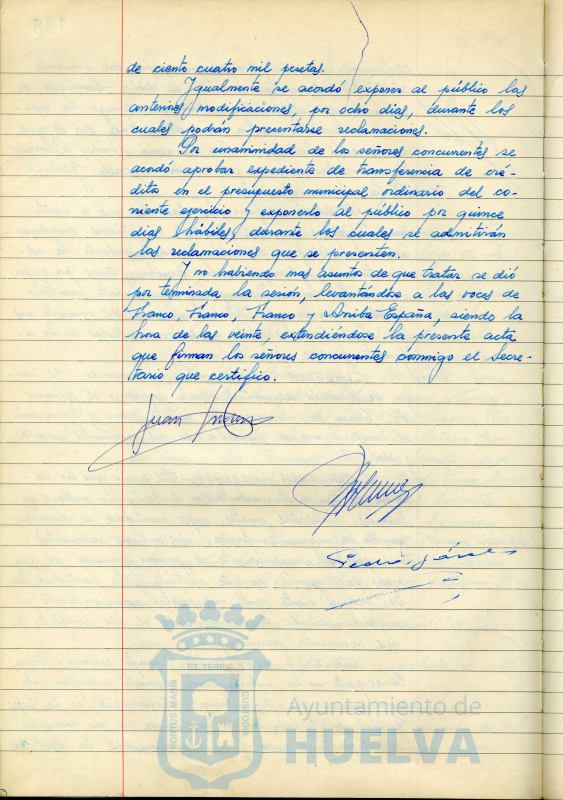 de ciento cuatro mil pesetas.
Igualmente se acordó exponer al público las
anteriores modificaciones, por ocho días, durante los
cuales podrán presentarse reclamaciones.
Por unanimidad de los señores concurrentes se
acordó aprobar expediente de transferencia de cré-
ditos en el presupuesto municipal ordinario del co-
rriente ejercicio y exponerlo al público por quince
días hábiles, durante los cuales se admitirán
las reclamaciones que se presenten.
Y no habiendo mas asuntos de que tratar se dió
por terminada la sesión, levantándose a las voces de
Franco, Franco, Franco y Arriba España, siendo la
hora de las veinte, extendiéndose la presente acta
que firman los señores concurrentes conmigo el Secre-
tario que certifico.
Juan
Pedro
EL TERRÆ
PORTUS MARIS
CUSTODIA
Ayuntamiento de
HUELVA